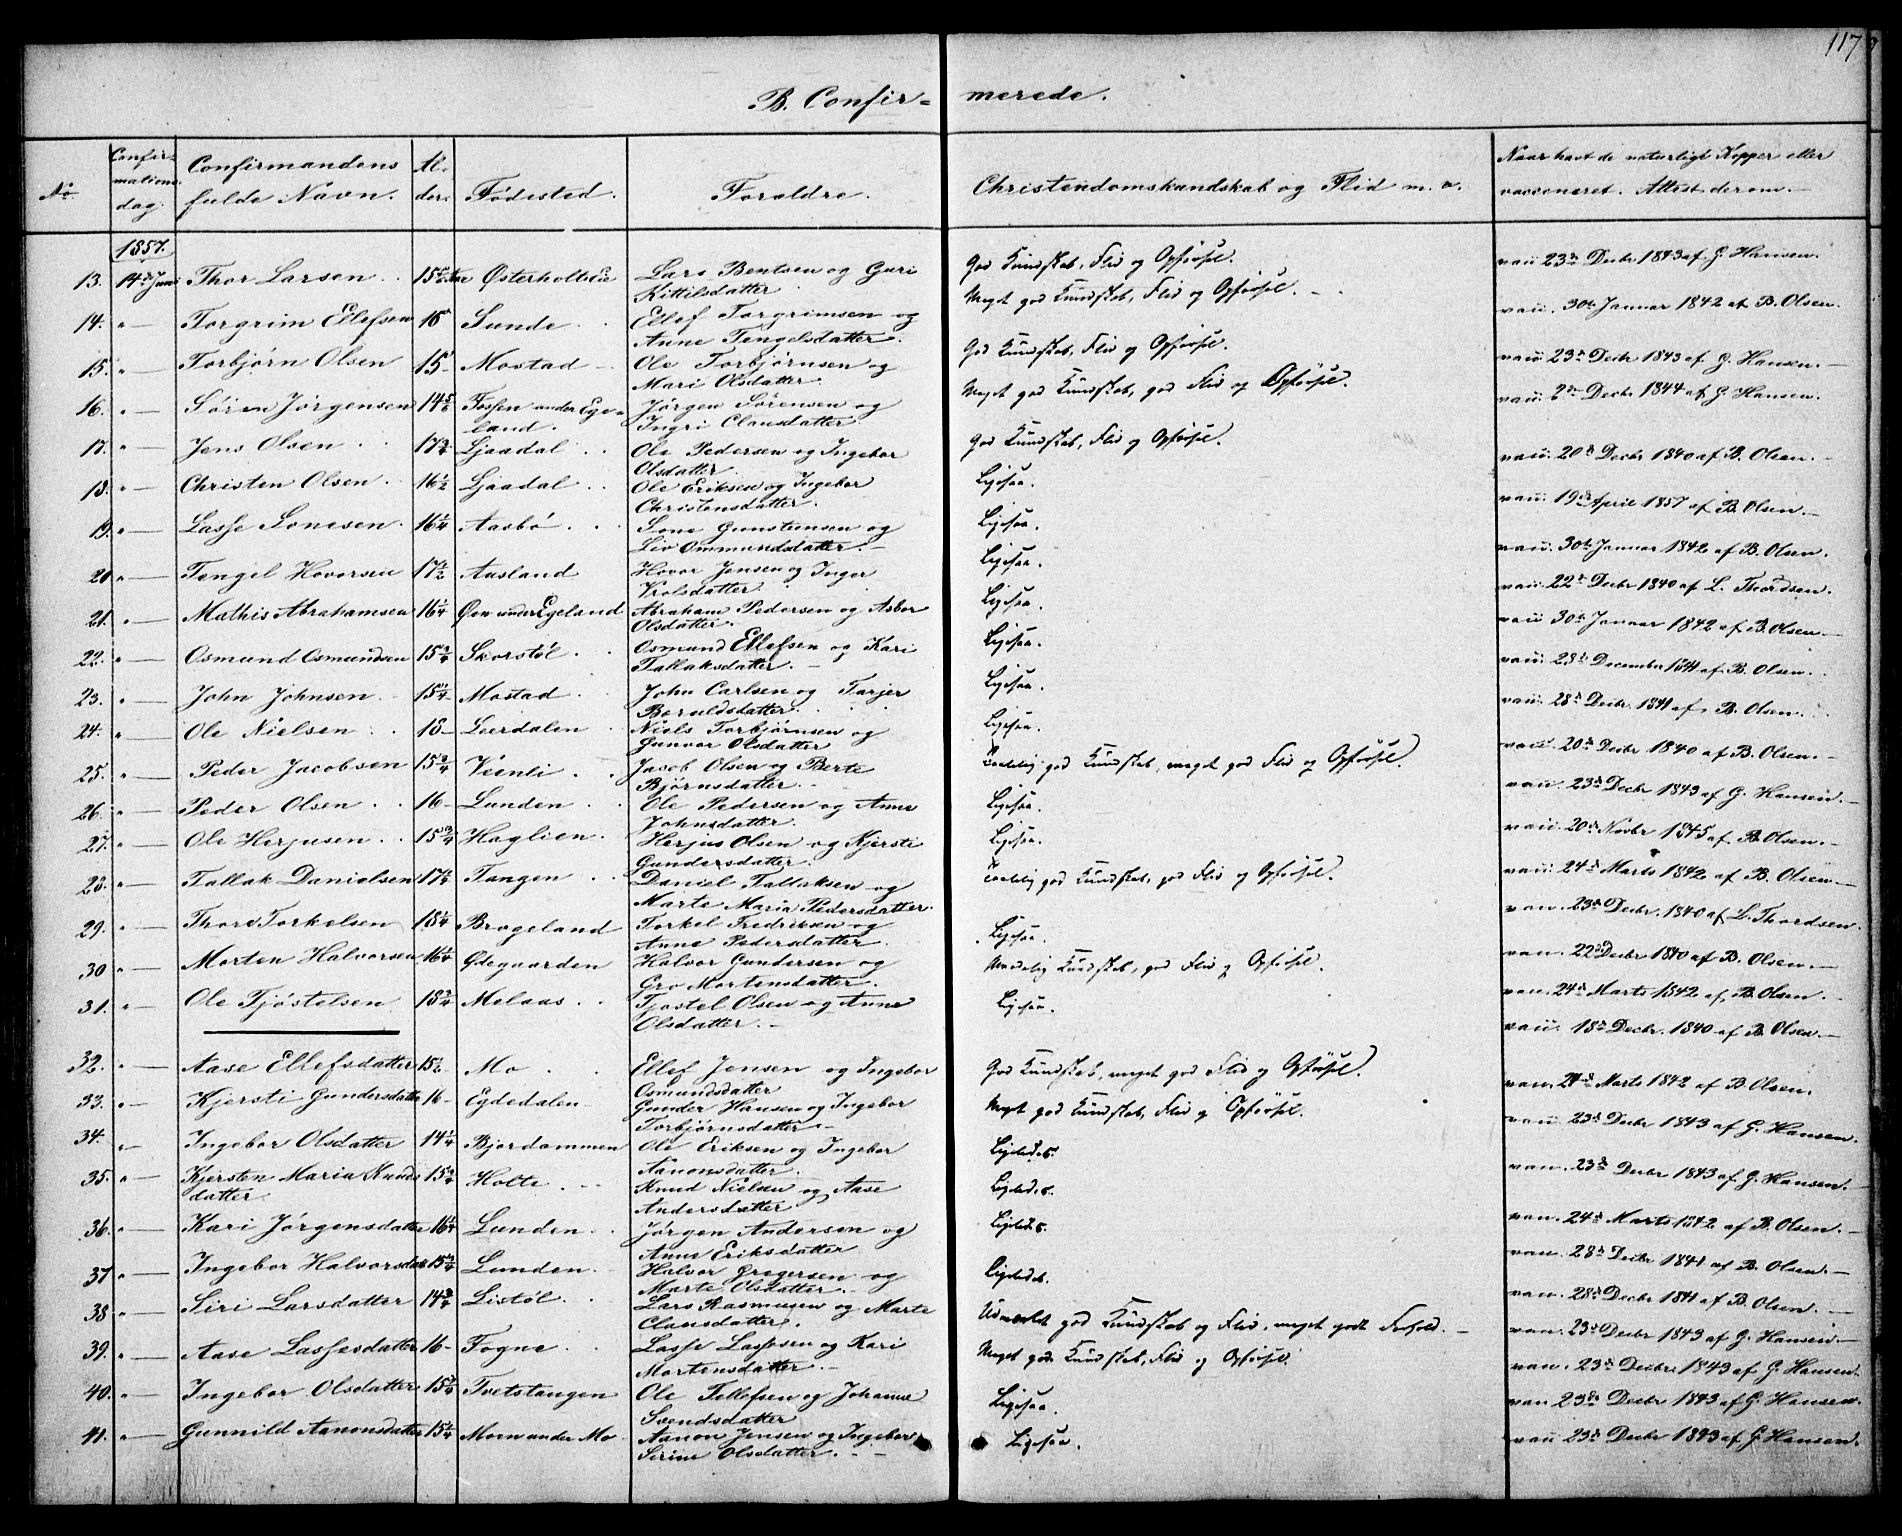 117
B. Confir= merede.
No
Confirmations dag.
Confirmandens fulde Navn.
Alder.
Fødested.
Forældre.
Christendomskundskab og Flid m. v.
Naar havt de naturligt Kopper eller vaccineret. Attest derom.
1857.
13. 14de Juni Thor Larsen Østerholtseie Lars Bentsen og Guri Kittilsdatter God Kundskab, Flid og Opførsel. vacc 23de Decbr 1843 af G. Hansen.
14. " Torgrim Ellefsen 15 Sunde Ellef Torgrimsen og Anne Tengelsdatter. Meget god Kundskab, Flid og Opførsel. vacc. 30te Januar 1842 af B. Olsen.
15. " Torbjørn Olsen 15 Mostad Ole Torbjørnsen og Mari Olsdatter. God Kundskab, Flid og Opførsel. vacc. 23de Decbr 1843 af G. Hansen.
16. " Søren Jørgensen Fossen under Egeland. Jørgen Sørensen og Ingri Clausdatter. Meget god Kundskab, god Flid og Opførsel. vacc. 2den Decbr 1844 af G. Hansen.
17. " Jens Olsen Ljaadal Ole Pedersen og Ingebor Olsdatter. God Kundskab, Flid og Opførsel. vacc. 20de Decbr 1840 af B. Olsen.
18. " Christen Olsen 16 1/2 Ljaadal Ole Eriksen og Ingebor Christensdatter. Ligesaa. vacc. 19de April 1857 af B. Olsen.
19. " Lasse Sonesen 16 1/4 Aasbø Sone Gunstensen og Liv Ommundsdatter. Ligesaa. vacc. 30te Januar 1842 af B. Olsen.
20. " Tengel Hovorsen 17 1/2 Aasland Hovor Jensen og Inger Vrolsdatter. Ligesaa. vacc. 22de Decbr 1840 af L. Thordsen.
21. " Mathis Abrahamsen 16 1/4 Øen under Egeland Abraham Pedersen og Asbor Olsdatter. Ligesaa. vacc. 30te Januar 1842 af B. Olsen.
22. " Osmund Osmundsen 15 3/4 Skorstøl Osmund Ellefsen og Kari Tallaksdatter. Ligesaa. vacc. 28de December 1841 af B. Olsen.
23. " John Johnsen Mostad John Carlsen og Tarjer Beruldsdatter. Ligesaa. vacc. 28de Decbr. 1841 af B. Olsen.
24. " Ole Nielsen 18 Leerdalen Niels Torbjørnsen og Gunvor Olsdatter Ligesaa. vacc. 20de Decbr 1840 af B. Olsen.
25. " Peder Jacobsen 15 3/4 Veenli Jacob Olsen og Berte Bjørnsdatter. Taalelig god Kundskab, meget god Flid og Opførsel. vacc. 23de Decbr 1843 af G. Hansen.
26. " Peder Olsen 16 Lunden Ole Pedersen og Anne Johnsdatter. Ligesaa. vacc. 20de Novbr 1845 af B. Olsen.
27. " Ole Herjusen 15 3/4 Haglien Herjus Olsen og Kjersti Gundersdatter. Ligesaa. vacc. 24de Marts 1842 af B. Olsen.
28. " Tallak Danielsen 17 1/4 Tangen Daniel Tallaksen og Marte Maria Pedersdatter. Taalelig god Kundskab, god Flid og Opførsel. vacc. 23de Decbr. 1840 af L. Thordsen.
29. " Thore Torkelsen 18 1/4 Brogeland Torkel Fredriksen og Anne Pedersdatter. Ligesaa. vacc. 22de Decbr 1840 af B. Olsen.
30. " Morten Halvorsen 16 1/4 Ødegaarden Halvor Gundersen og Gro Mortensdatter. Maadelig Kundskab, god Flid og Opførsel. vacc. 24de Marts 1842 af B. Olsen.
31. " Ole Tjøstelsen 18 3/4 Melaas Tjøstel Olsen og Anne Olsdatter. Ligesaa. vacc. 18de Decbr. 1840 af B. Olsen.
32. " Aase Ellefsdatter Mo Ellef Jensen og Ingebor Osmundsdatter God Kundskab, meget god Flid og Opførsel. vacc. 24de Marts 1842 af B. Olsen.
33. " Kjersti Gundersdatter 16 Egdedalen Gunder Hansen og Ingebor Torbjørnsdatter Meget god Kundskab, Flid og Opførsel. vacc. 23de Decbr 1843 af G. Hansen.
34. " Ingebor Olsdatter 14 1/4 Bjordammen Ole Eriksen og Ingebor Aanonsdatter. Ligeledes. vacc. 23de Decbr 1843 af G. Hansen.
35. " Kjersten Maria Knudsdatter. 15 3/4 Holte Knud Nielsen og Aase Andersdatter Ligeledes. vacc. 24de Marts 1842 af B. Olsen.
36. " Kari Jørgensdatter 16 1/4 Lunden Jørgen Andersen og Anne Eriksdatter Ligeledes. vacc. 28de Decbr 1841 af B. Olsen.
37. " Ingebor Halvorsdatter 15 3/4 Lunden. Halvor Gregersen og Marte Olsdatter. Ligeledes. vacc. 28de Decbr 1841 af B. Olsen.
38. " Siri Larsdatter 14 3/4 Listøl Lars Rasmusen og Marte Clausdatter. Udmærket god Kundskab og Flid, meget godt Forhold. vacc. 23de Decbr 1843 af G. Hansen.
39. " Aase Lassesdatter 16 Fogne Lasse Lassesen og Kari Mortensdatter. Meget god Kundskab, Flid og Opførsel. vacc. 23de Decbr. 1843 af G. Hansen.
40. " Ingebor Olsdatter Tvetstangen Ole Tellefsen og Johanne Svendsdatter Ligesaa. vacc 23de Decbr 1843 af G. Hansen.
41. " Gunnild Aanonsdatter 15 1/4 Moen under Mo Aanon Jensen og Ingebor Serine Olsdatter. Ligesaa. vacc 23de Decbr 1843 af G. Hansen.